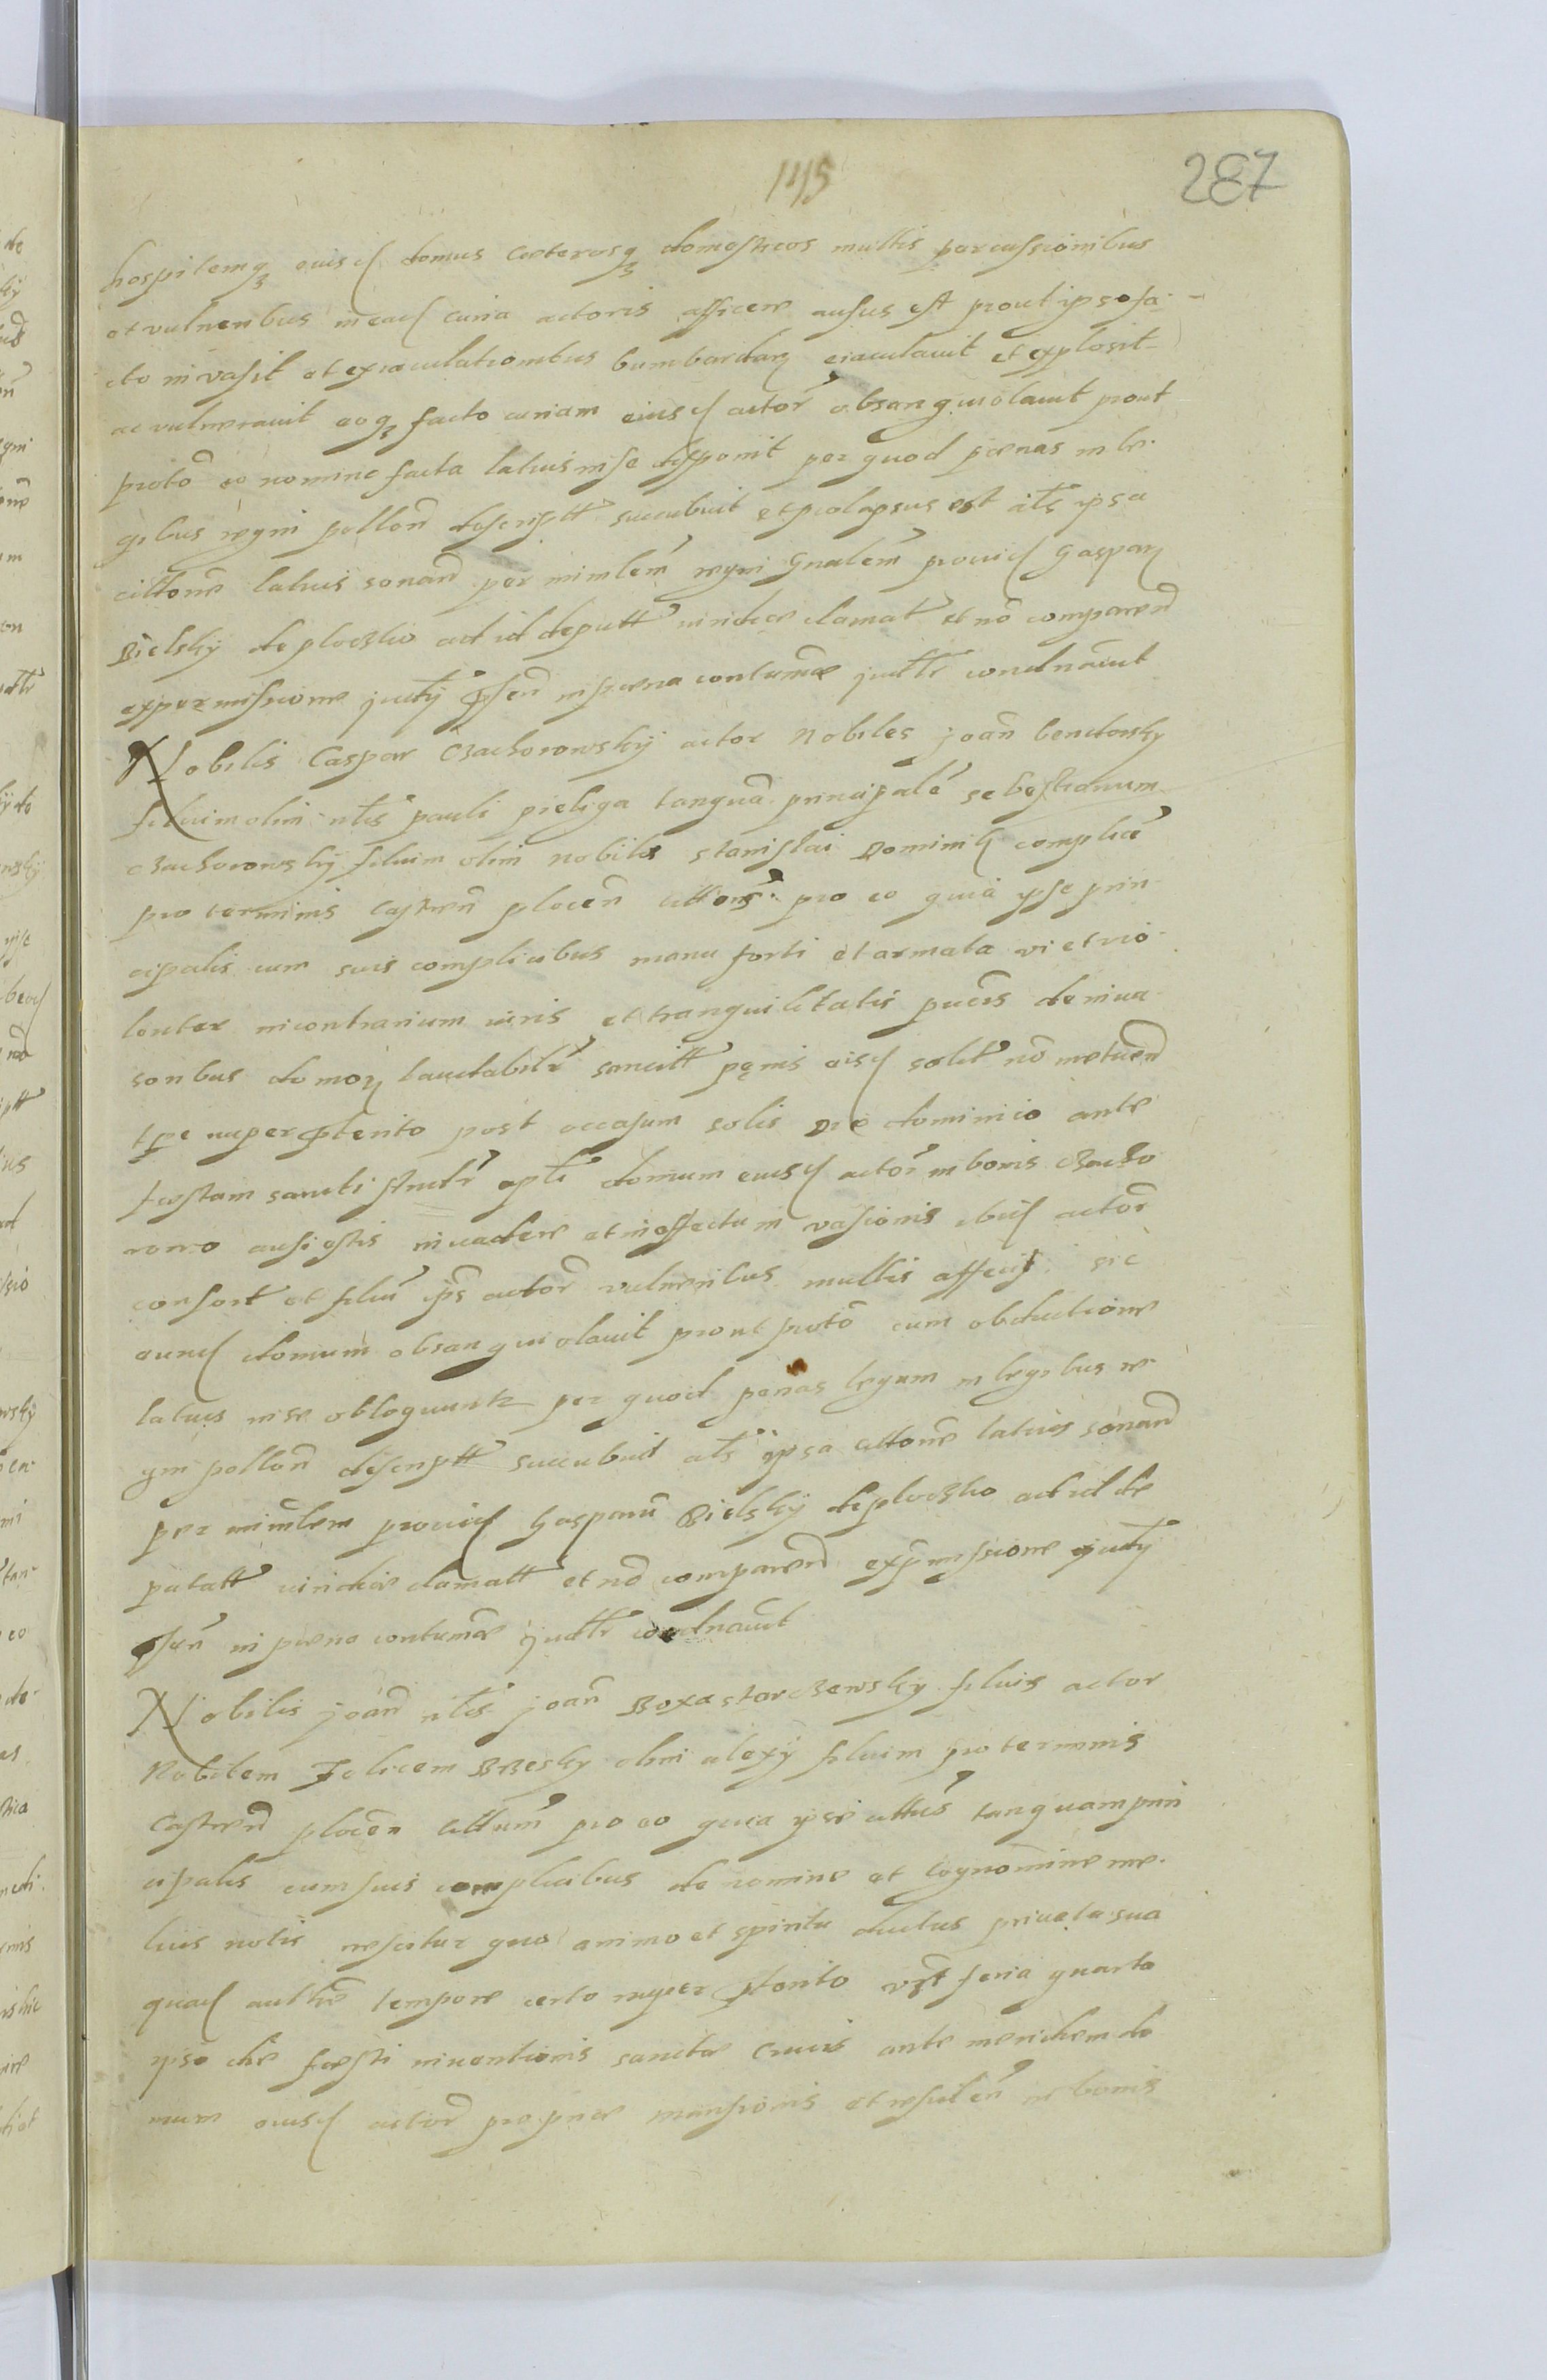 145
287
hospitemq3 eiusd domus caeterosq3 domesticos multis parcussionibus
et vulneribus in ead curia actoris afficere ausus est prout ipso fa-
cto invasit et exiaculationibus bumbardarz eiaculavit et explosit
ac vulneravit eoq3 facto curiam eiusd actor obsanguiolavit prout
proto eo nomine facta latius in se disponit per quod paenas in le-
gibus regni pollon descriptt succubuit et prolapsus est alz ipsa
cittone latius sonand per minlem regni Gnalem provid Gasparz
Bielsky de ploczko ad id deputt iuridice clamat et no comparend
ex permissione judicij psen in paena contumae judlr condnavit
Nobilis Caspar Czachorowskij actor Nobiles joan bendorsky
filium olim nlis pauli pieliga tanqua principale sebestianum
czachorowskij filium olim nobilis stanislai Dominik complice
pro terminis Castren plocen cittos pro eo quia ipse prin-
cipalis cum suis complicibus manu forti et armata vi et vio-
lenter in contrarium iuris et tranquilitatis pucis de inva-
soribus domorz laudabilr sancitt pęnis eisd solit no metuend
tpe nuper pterito post occasum solis die dominico ante
festam sancti Andr apli domum eiusd actor in bonis Czacho
rowo ausi estis invadere et in effectu invasionis ibid actor
consort et filiu ips actor vulneribus multis affecit sic
eund domum obsanguiolavit prout proto cum obductione
latius in se obloquuntr per quod penas legum in legibus re-
gni pollon descriptt succubuit alz ipsa cittone latius sonand
per minlem provid Gasparu Bielskij de ploczko ad id de
putatt iuridice clamatt et no comparend ex pmissione judij
psen in paena contumae judlr condnavit
Nobilis joan nlis joan Boxa starczewsky filius actor
Nobilem Felicem Brzesky olim alexij filium pro terminis
Castren plocen cittum pro eo quia ipse cittus tanquam prin
cipalis cum suis complicibus de nomine et cognomine me-
lius notis nescitur quo animo et spiritu ductus privata sua
quad authte tempore certo nuper pterito vzt feria quarta
ipso die festi inventionis sanctae Crucis ante meridiem do
mum eiusd actor propriae mansionis et residen in bonis